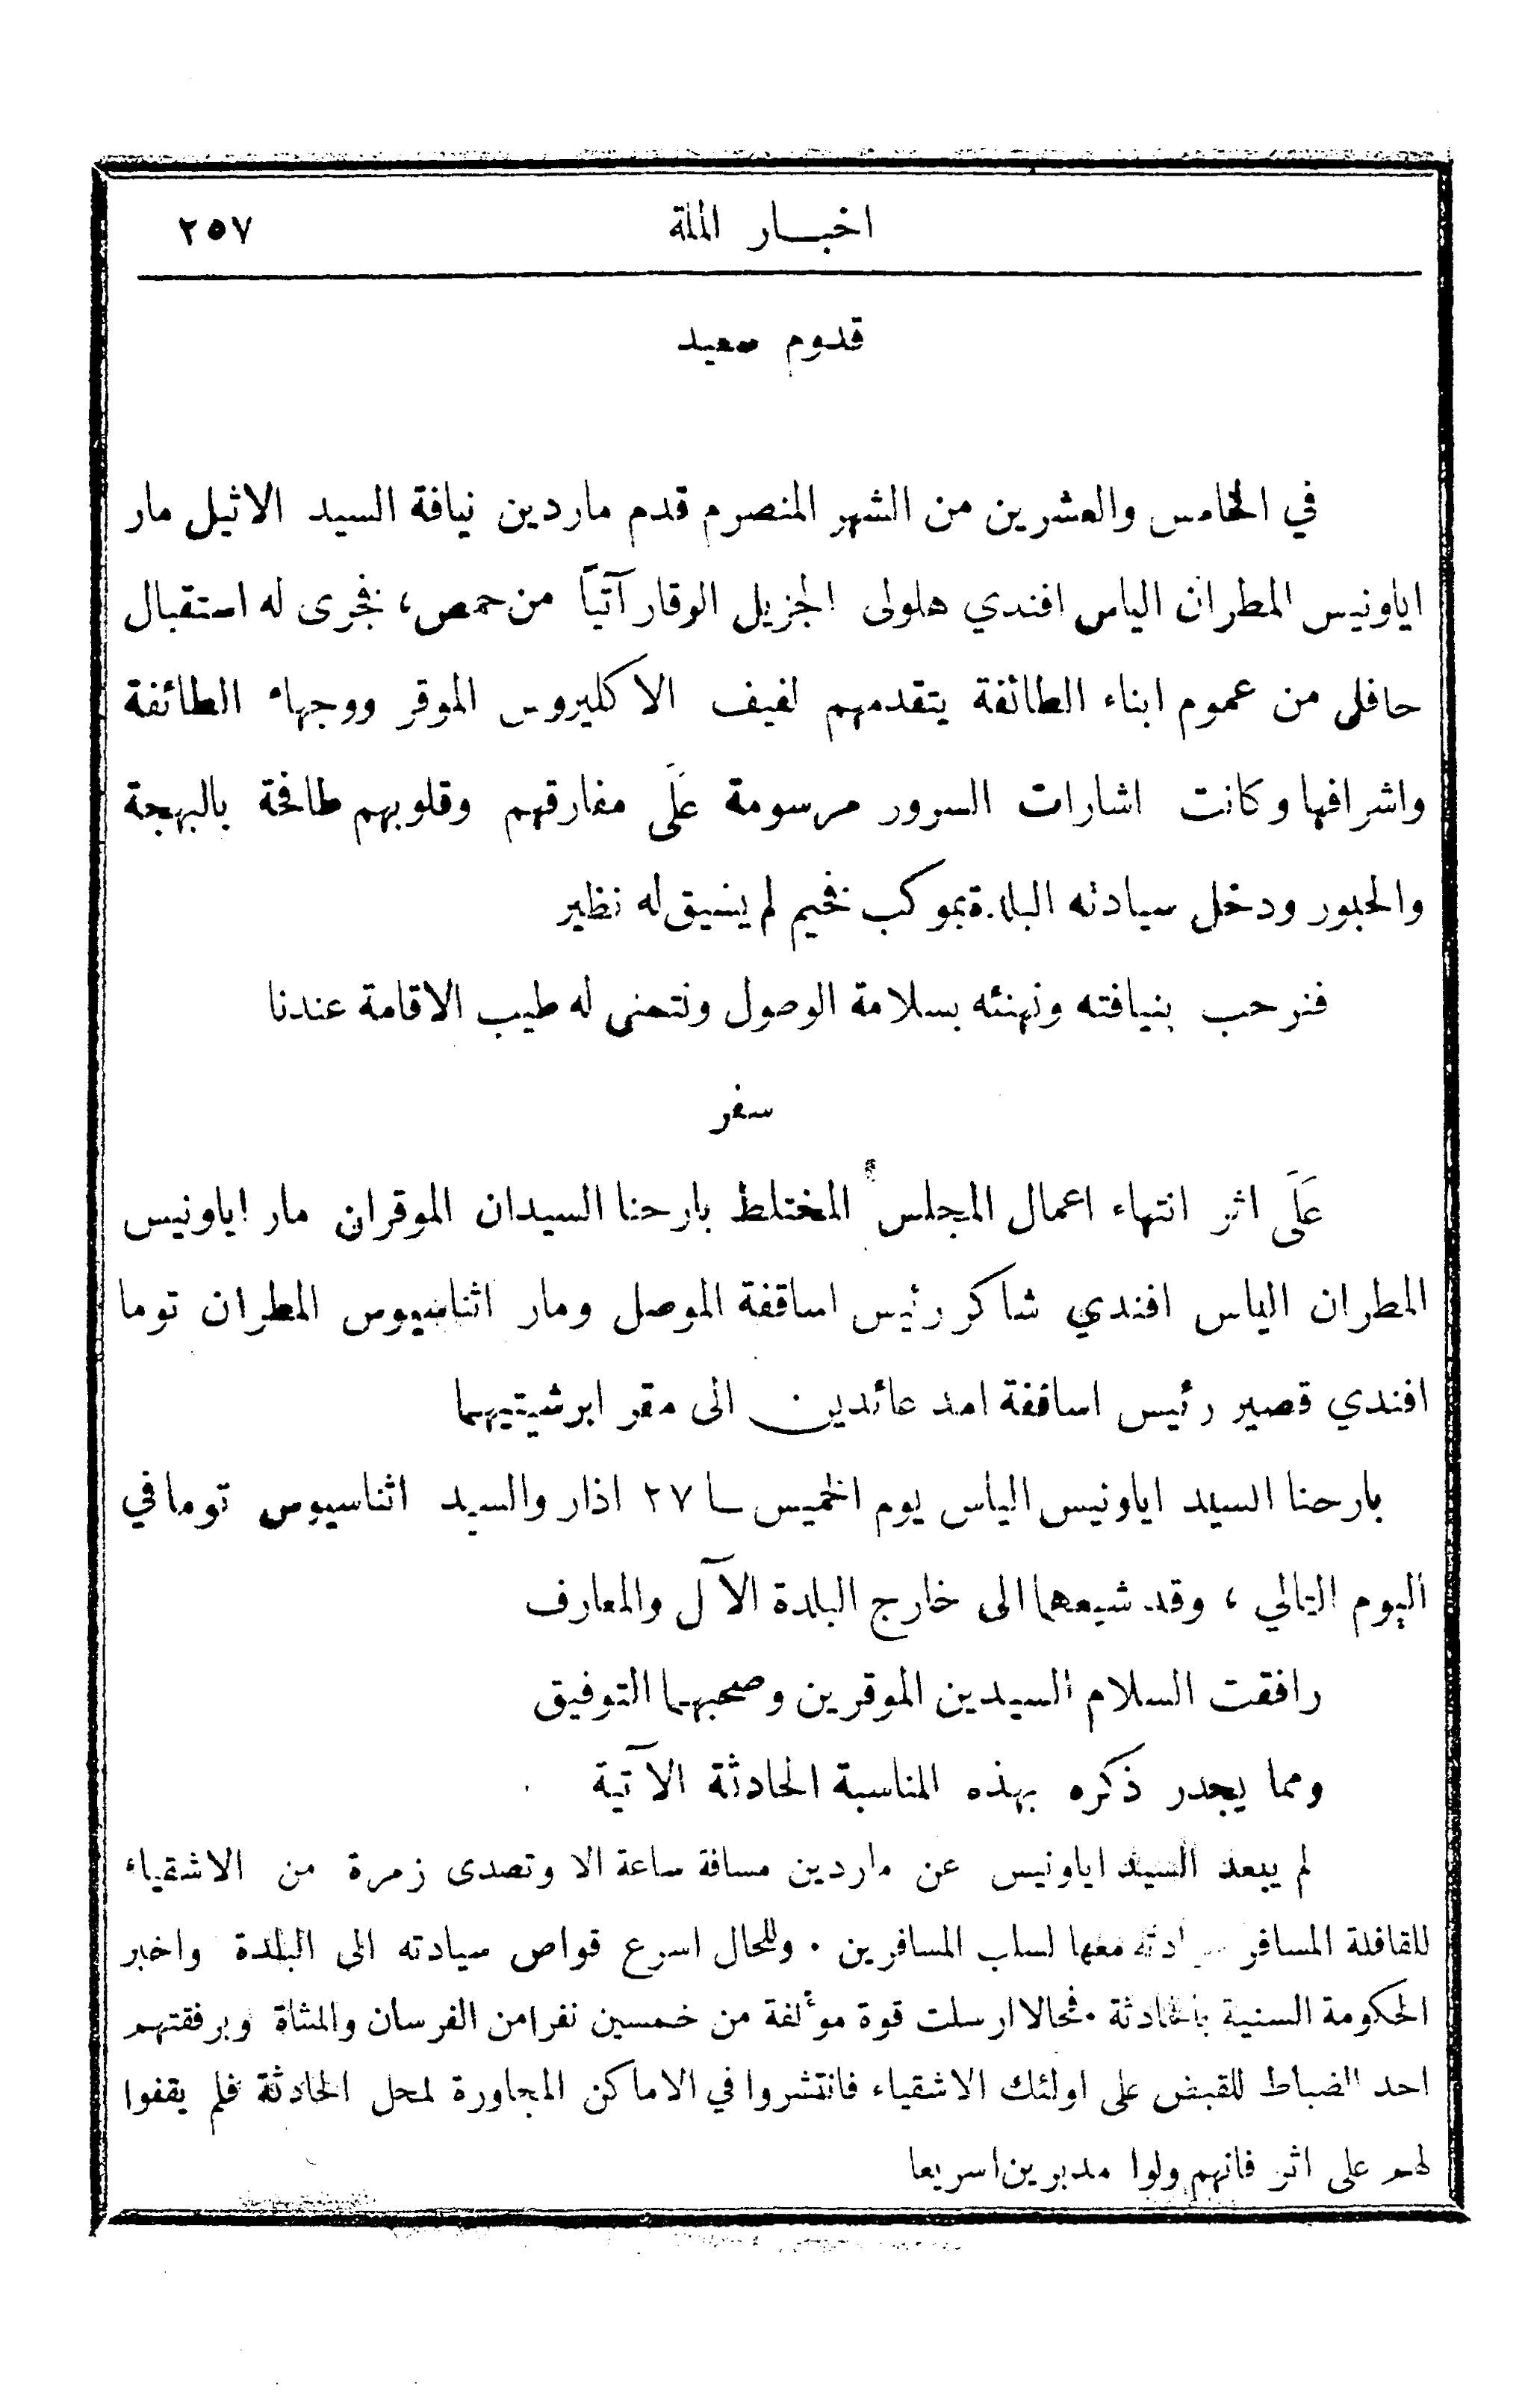 اخبار الملة ٢٥٧
قدوم سعيد
في الخامس والعشرين من الشهر المنصرم قدم ماردين نيافة السيد الاثيل مار
اياونيس المطران الياس افندي هلولى الجزيل الوقار آتياً من حمص، فجرى له استقبال
حافل من عموم ابناء الطائفة يتقدمهم لفيف الاكليروس الموقر ووجهاء الطائفة
واشرافها وكانت اشارات السرور مرسومة عَلَى مفارقهم وقلوبهم طافحة بالبهجة
والحبور ودخل سيادته البلدة بموكب فخيم لم يسبق له نظير
فنرحب بنيافته ونهنئه بسلامة الوصول ونتمنى له طيب الاقامة عندنا
سفر
عَلَى اثر انتهاء اعمال المجلس المختلط بارحنا السيدان الموقران مار اياونيس
المطران الياس افندي شاكر رئيس اساقفة الموصل ومار اثناسيوس المطران توما
افندي قصير رئيس اساقفة امد عائدين الى مقر ابرشيتيهما
بارحنا السيد اياونيس الياس يوم الخميس ٢٧ اذار والسيد اثناسيوس توما في
اليوم التالي ، وقد شيعهما الى خارج البلدة الآل والمعارف
رافقت السلام السيدين الموقرين وصحبهما التوفيق
ومما يجدر ذكره بهذه المناسبة الحادثة الآتية
لم يبعد السيد اياونيس عن ماردين مسافة ساعة الا وتصدى زمرة من الاشقياء
للقافلة المسافر معها لسلب المسافرين . وللحال اسرع قواص سيادته الى البلدة واخبر
الحكومة السنية بالحادثة . فحالا ارسلت قوة موٴلفة من خمسين نفرا من الفرسان والمشاة وبرفقتهم
احد الضباط للقبض على اولئك الاشقياء فانتشروا في الاماكن المجاورة لمحل الحادثة فلم يقفوا
لهم على اثر فانهم ولوا مدبرين اسريعا